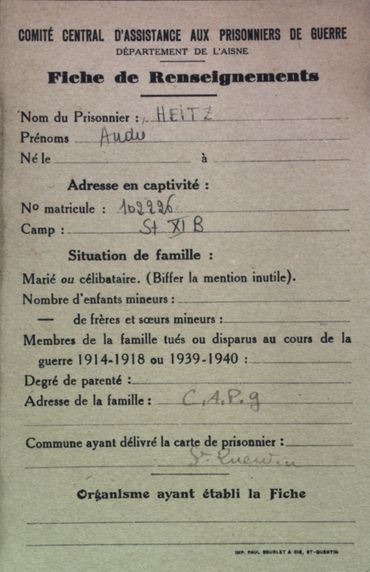 COMITÉ CENTRAL D'ASSISTANCE AUX PRISONNIERS DE GUERRE
DÉPARTEMENT DE L'AISNE
Fiche de Renseignements
Nom du Prisonnier : HEITZ
Prénoms André
Né le à
Adresse en captivité :
No matricule : 102226
Camp : St XI B
Situation de famille :
Marié ou célibataire. (Biffer la mention inutile).
Nombre d'enfants mineurs :
— de frères et sœurs mineurs :
Membres de la famille tués ou disparus au cours de la
guerre 1914-1918 ou 1939-1940 :
Degré de parenté :
Adresse de la famille : C.A.P.g
Commune ayant délivré la carte de prisonnier :
St Quentin
Organisme ayant établi la Fiche
IMP. PAUL BOURLET & CIE, ST-QUENTIN